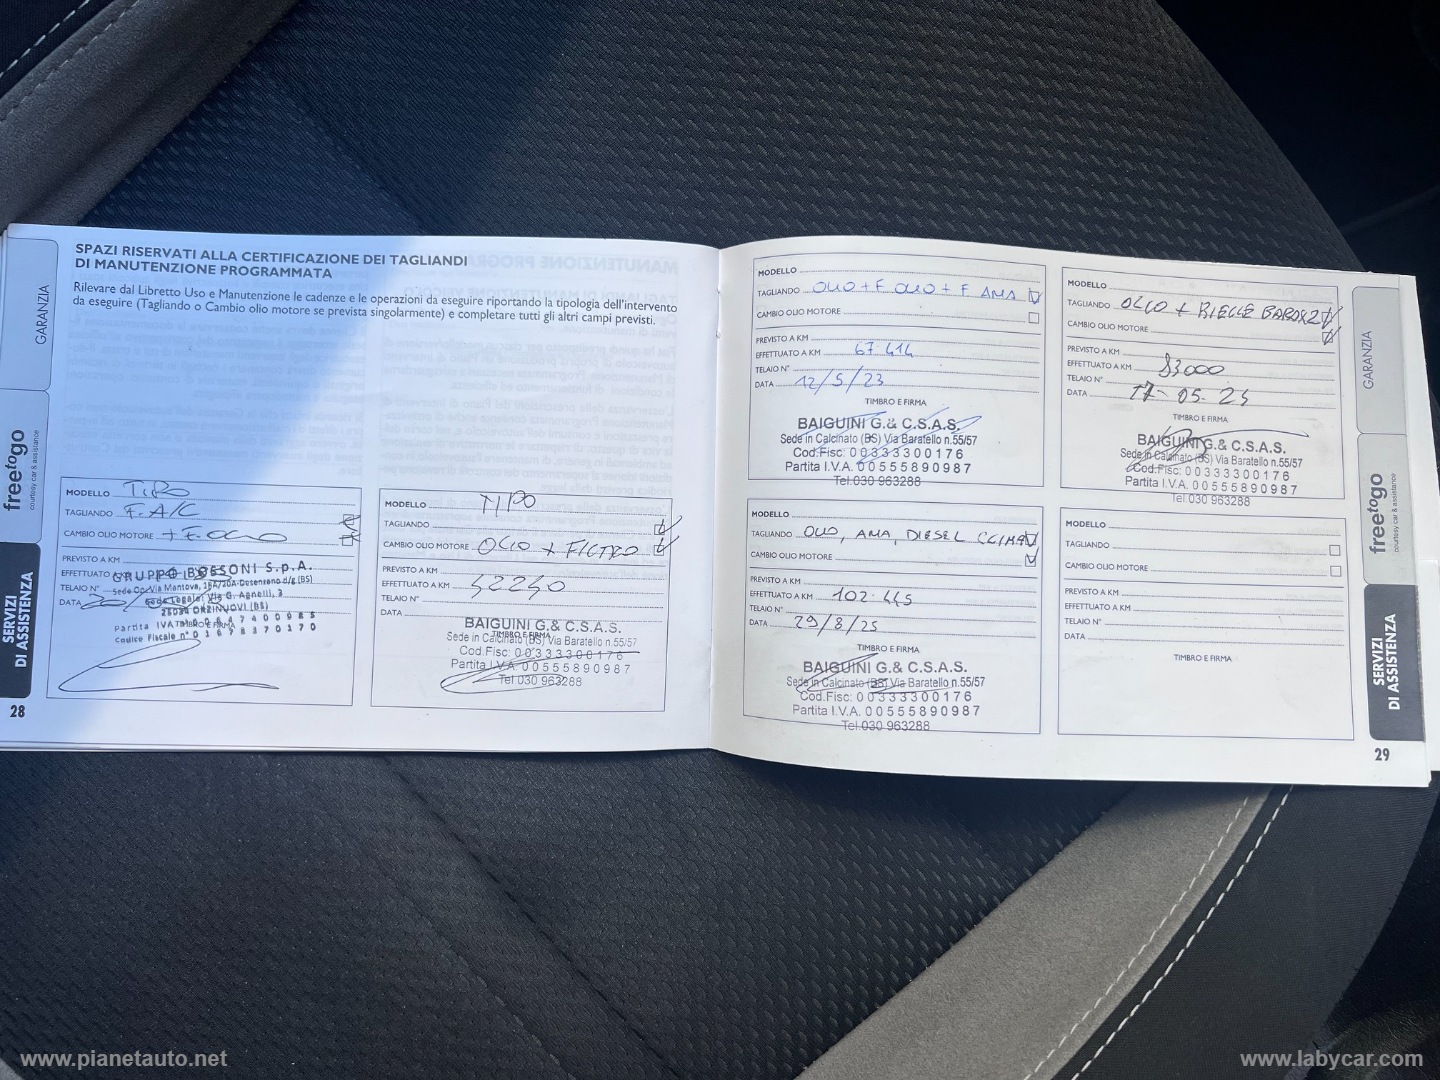 SPAZI RISERVATI ALLA CERTIFICAZIONE DEI TAGLIANDI
DI MANUTENZIONE PROGRAMMATA
Rilevare dal Libretto Uso e Manutenzione le cadenze e le operazioni da eseguire riportando la tipologia dell'intervento
da eseguire (Tagliando o Cambio olio motore se prevista singolarmente) e completare tutti gli altri campi previsti.
GARANZIA
freetogo
courtesy car & assistance
SERVIZI
DI ASSISTENZA
MODELLO TIPO
TAGLIANDO F.A/C
CAMBIO OLIO MOTORE + F. OLIO
PREVISTO A KM
EFFETTUATO
GRUPPO BOSSONI S.p.A.
TELAIO N°
DATA
25034 ORZINUOVI (BS)
Partita IVA
Codice Fiscale n° 01678370170
28
MODELLO TIPO
TAGLIANDO
CAMBIO OLIO MOTORE OLIO + FILTRO
PREVISTO A KM
EFFETTUATO A KM 52240
TELAIO N°
DATA
TIMBRO E FIRMA
BAIGUINI G.& C.S.A.S.
Sede in Calcinato (BS) Via Baratello n.55/57
Cod.Fisc: 00333300176
Partita I.V.A. 00555890987
Tel.030 963288
MODELLO
TAGLIANDO OLIO + F OLIO + F ARIA
CAMBIO OLIO MOTORE
PREVISTO A KM
EFFETTUATO A KM 67.414
TELAIO N°
DATA 12/5/23
TIMBRO E FIRMA
BAIGUINI G.& C.S.A.S.
Sede in Calcinato (BS) Via Baratello n.55/57
Cod.Fisc: 00333300176
Partita I.V.A. 00555890987
Tel.030 963288
MODELLO
TAGLIANDO OLIO +
CAMBIO OLIO MOTORE
PREVISTO A KM
EFFETTUATO A KM 83000
TELAIO N°
DATA 17-05-24
TIMBRO E FIRMA
BAIGUINI G.& C.S.A.S.
Sede in Calcinato (BS) Via Baratello n.55/57
Cod.Fisc: 00333300176
Partita I.V.A. 00555890987
Tel.030 963288
MODELLO
TAGLIANDO OLIO, ARIA, DIESEL CLIMA
CAMBIO OLIO MOTORE
PREVISTO A KM
EFFETTUATO A KM 102.445
TELAIO N°
DATA 29/8/25
TIMBRO E FIRMA
BAIGUINI G.& C.S.A.S.
Sede in Calcinato (BS) Via Baratello n.55/57
Cod.Fisc: 00333300176
Partita I.V.A. 00555890987
Tel.030 963288
MODELLO
TAGLIANDO
CAMBIO OLIO MOTORE
PREVISTO A KM
EFFETTUATO A KM
TELAIO N°
DATA
TIMBRO E FIRMA
GARANZIA
freetogo
courtesy car & assistance
SERVIZI
DI ASSISTENZA
29
www.pianetauto.net
www.labycar.com